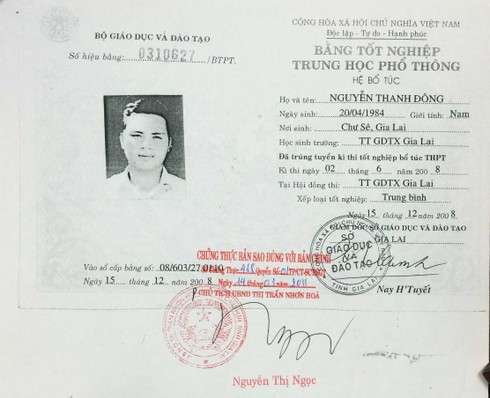 BỘ GIÁO DỤC VÀ ĐÀO TẠO
Số hiệu bằng: 0310627 /BTPT.
CỘNG HÒA XÃ HỘI CHỦ NGHĨA VIỆT NAM
Độc lập - Tự do - Hạnh phúc
BẰNG TỐT NGHIỆP
TRUNG HỌC PHỔ THÔNG
HỆ BỔ TÚC
Họ và tên: NGUYỄN THANH ĐÔNG
Ngày sinh: 20/04/1984 Giới tính: Nam
Nơi sinh: Chư Sê, Gia Lai
Học sinh trường: TT GDTX Gia Lai
Đã trúng tuyển kì thi tốt nghiệp bổ túc THPT
Kì thi ngày 02 tháng 6 năm 200 8
Tại Hội đồng thi: TT GDTX Gia Lai
Xếp loại tốt nghiệp: Trung bình
Ngày 15 tháng 12 năm 200 8
GIÁM ĐỐC SỞ GIÁO DỤC VÀ ĐÀO TẠO
GIA LAI
SỞ
GIÁO DỤC
VÀ
ĐÀO TẠO
TỈNH GIA LAI
Nay H'Tuyết
Vào sổ cấp bằng: 08/603/27
Ngày 15 tháng 12 năm 200 8
CHỨNG THỰC BẢN SAO ĐÚNG VỚI BẢN CHÍNH
CHỦ TỊCH UBND THỊ TRẤN NHƠN HOÀ
Nguyễn Thị Ngọc